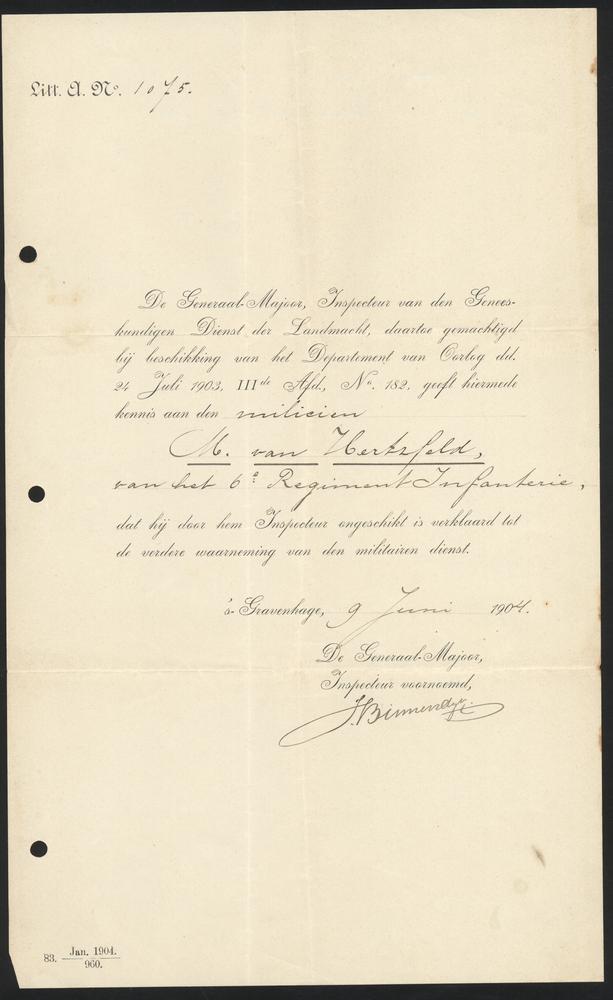 Litt. A. No. 1075.
De Generaal-Majoor, Inspecteur van den Genees-
kundigen Dienst der Landmacht, daartoe gemachtigd
bij beschikking van het Departement van Oorlog dd.
24 Juli 1903, IIIde Afd., No. 182, geeft hiermede
kennis aan den milicien
M. van Hertzfeld,
van het 6e Regiment Infanterie,
dat hij door hem Inspecteur ongeschikt is verklaard tot
de verdere waarneming van den militairen dienst.
's-Gravenhage, 9 Juni 1904.
De Generaal-Majoor,
Inspecteur voornoemd,
83. Jan. 1904.
960.